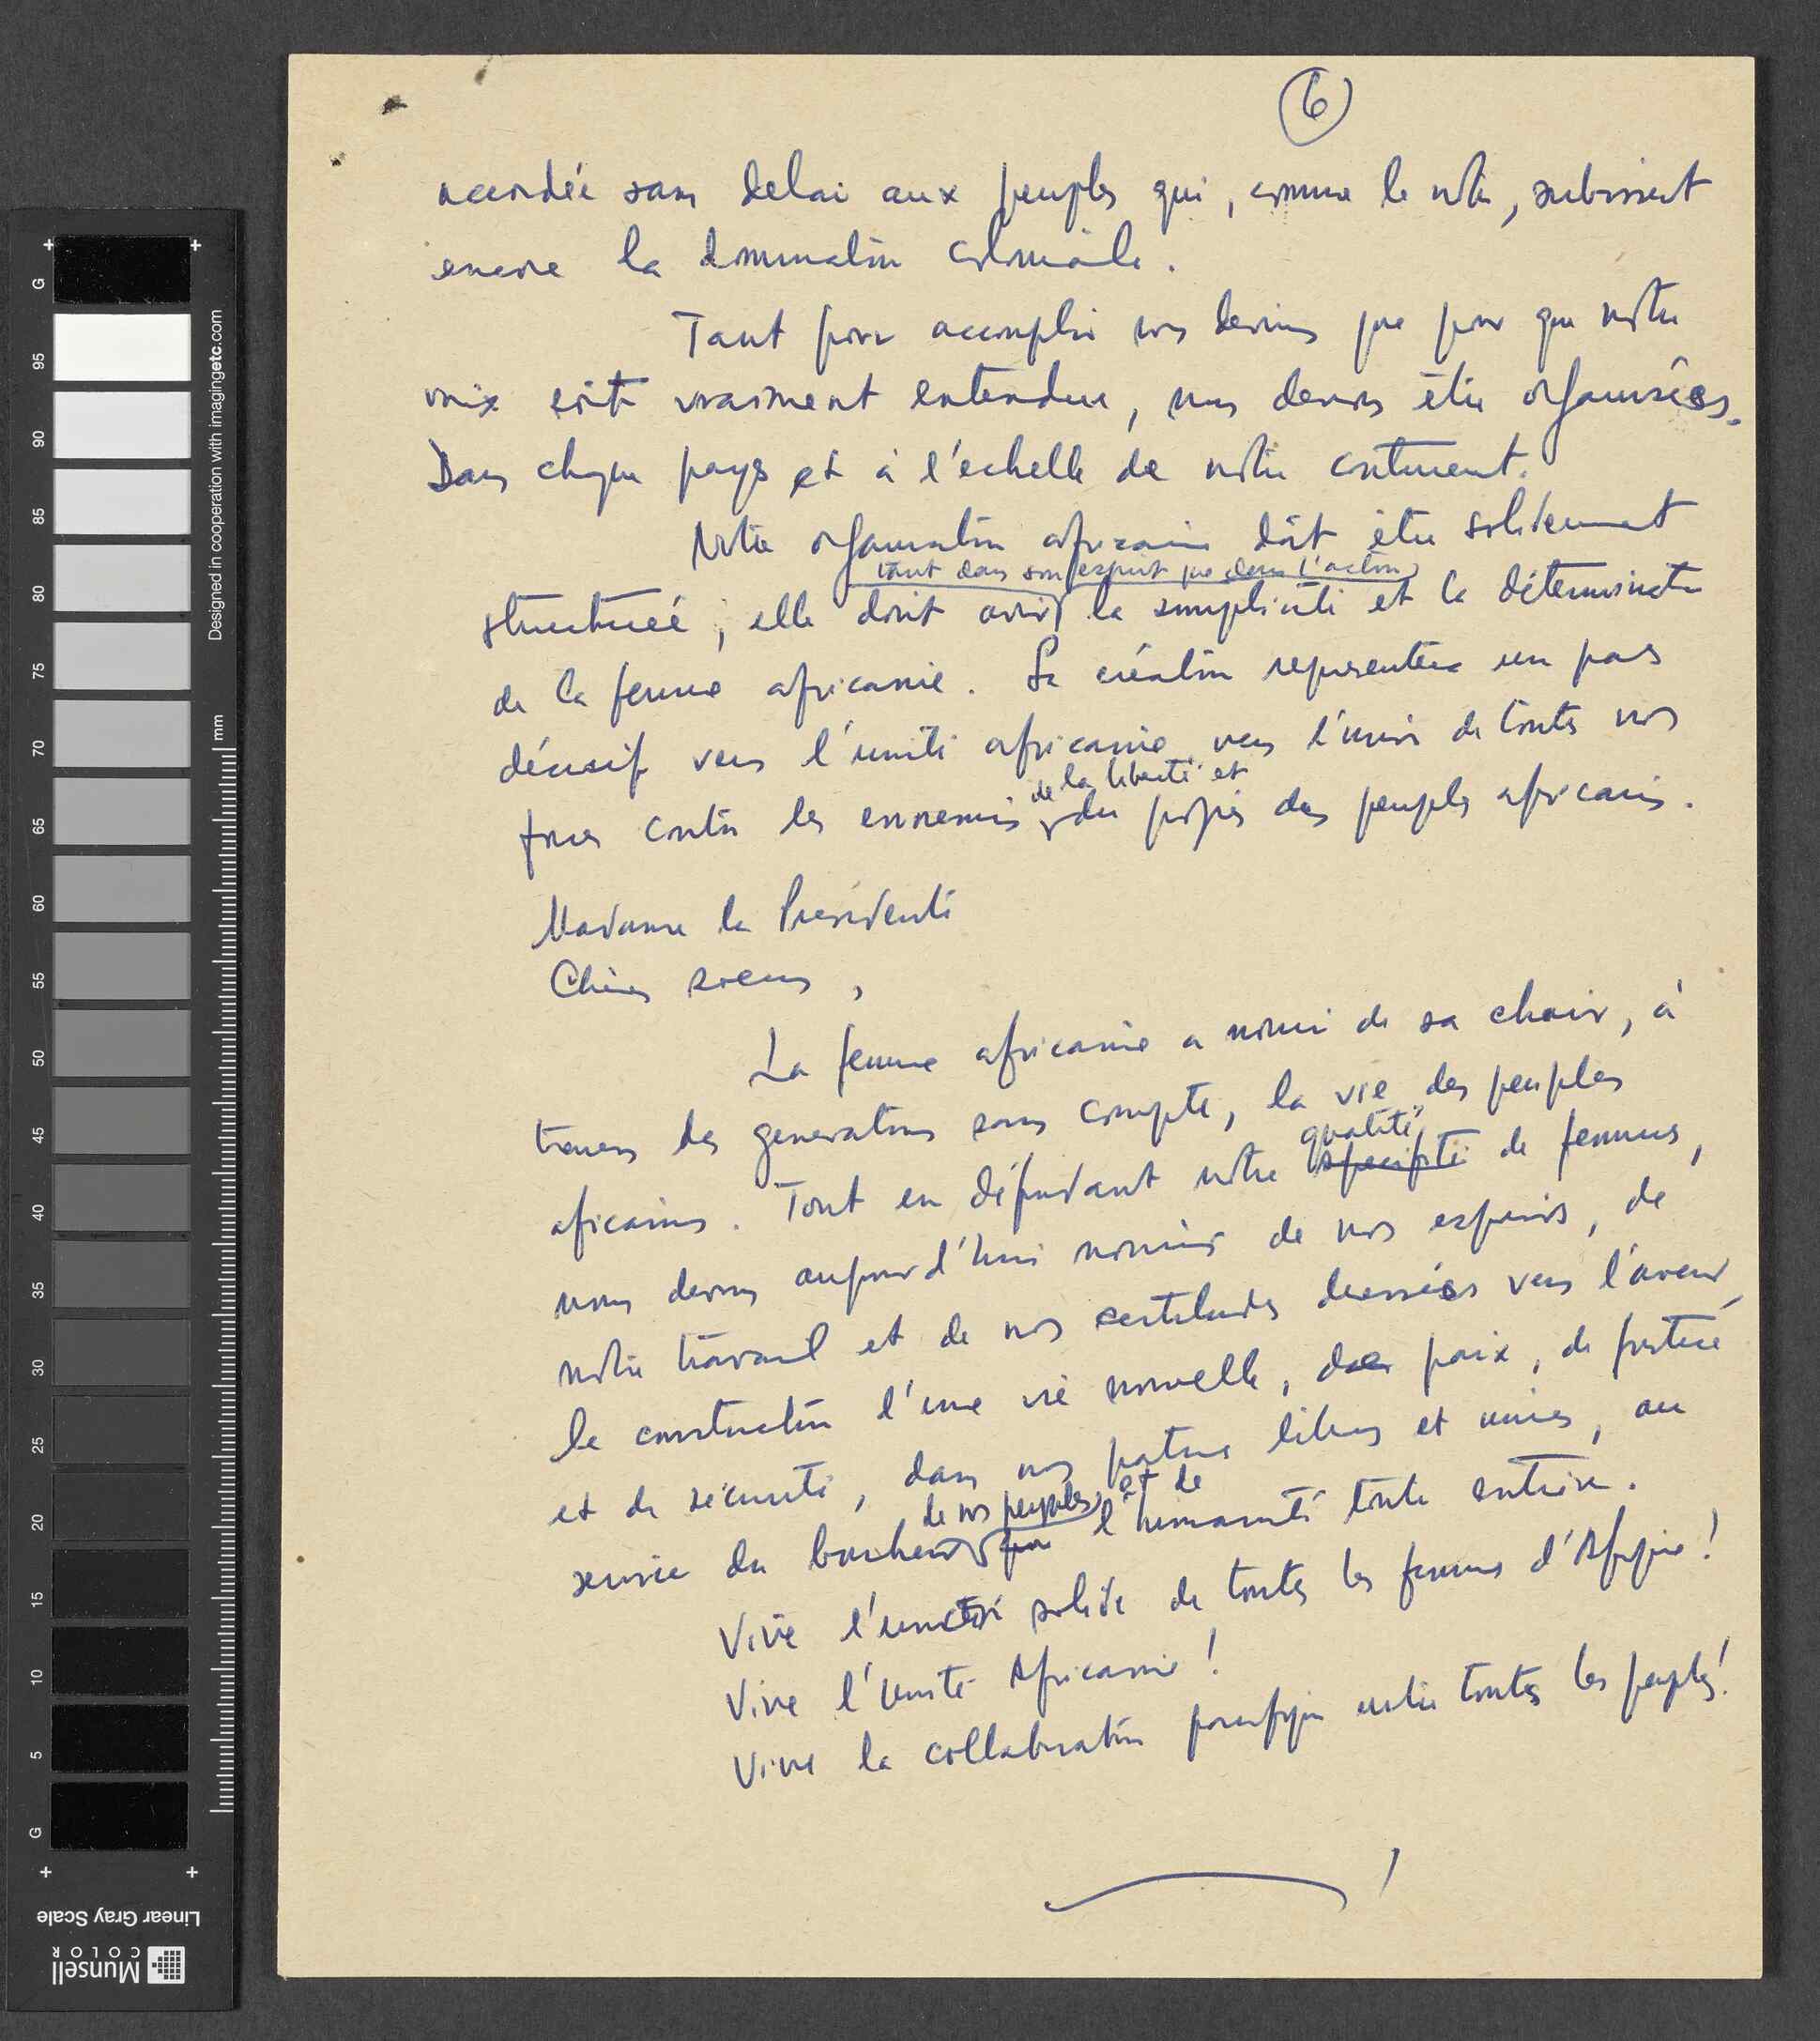 6
accordée sans delai aux peuples qui, comme le nôtre, subissent
encore la domination coloniale.
Tant pour accomplir nos devoirs que pour que notre
voix soit vraiment entendue, nous devons être organisées.
Dans chaque pays et à l'echelle de notre continent.
Notre organisation africaine doit être solidement
tant dans son esprit que dans l'action
structurée, elle doit avoir la simplicité et la détermination
de la femme africaine. Sa création representera un pas
décisif vers l'unité africaine, vers l'union de toutes nos
de la liberté et
forces contre les ennemis du progrès des peuples africains.
Madame la Présidente
Chères soeurs,
La femme africaine a nourri de sa chair, à
travers des generations sans compte, la vie des peuples
qualité
africains. Tout en défendant notre de femmes,
nous devons aujourd'hui nourrir de nos espoirs, de
notre travail et de nos certitudes dressées vers l'avenir,
la construction d'une vie nouvelle, de paix, de justice
et de sécurité, dans nos patries libres et unies, au
de nos peuples, et de
service du bonheur que l'humanité toute entière.
Vive l'union solide de toutes les femmes d'Afrique!
Vive l'Unité Africaine!
Vive la collaboration pacifique entre toutes les peuples!
G 95 90 85 80 75 70 65 60 55 50 45 40 35 30 25 20 15 10 5 G
Designed in cooperation with imagingetc.com
mm
Linear Gray Scale
Munsell
COLOR